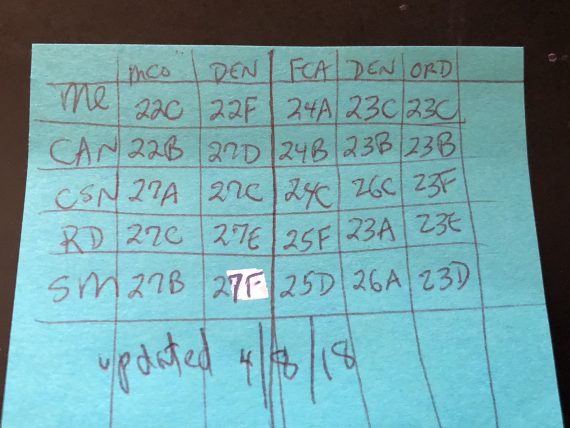 MCO DEN FCA DEN ORD
Me 22C 22F 24A 23C 23C
CAN 22B 27D 24B 23B 23B
CSN 27A 27C 24C 26C 23F
RD 27C 27E 25F 23A 23E
SM 27B 27F 25D 26A 23D
updated 4/8/18